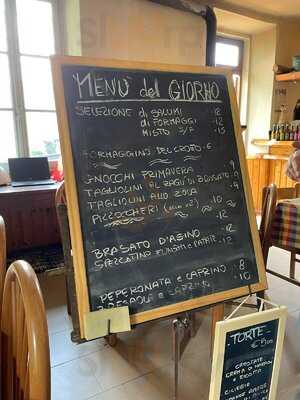 MENU' del GIORNO
SELEZIONE di SALUMI 12
di FORMAGGI 12
MISTO S/F 15
FORMAGGINO DEL CROTTO 6
GNOCCHI PRIMAVERA 9
TAGLIOLINI AL RAGU' DI 9
TAGLIOLINI ALLO ZOLA
PIZZOCCHERI (min x2) 10
12
BRASATO D'ASINO 12
SPEZZATINO FUNGHI e PATATE 12
PEPERONATA e CAPRINO 8
10
TORTE
CROSTATE
CREMA DI
E RICOTTA